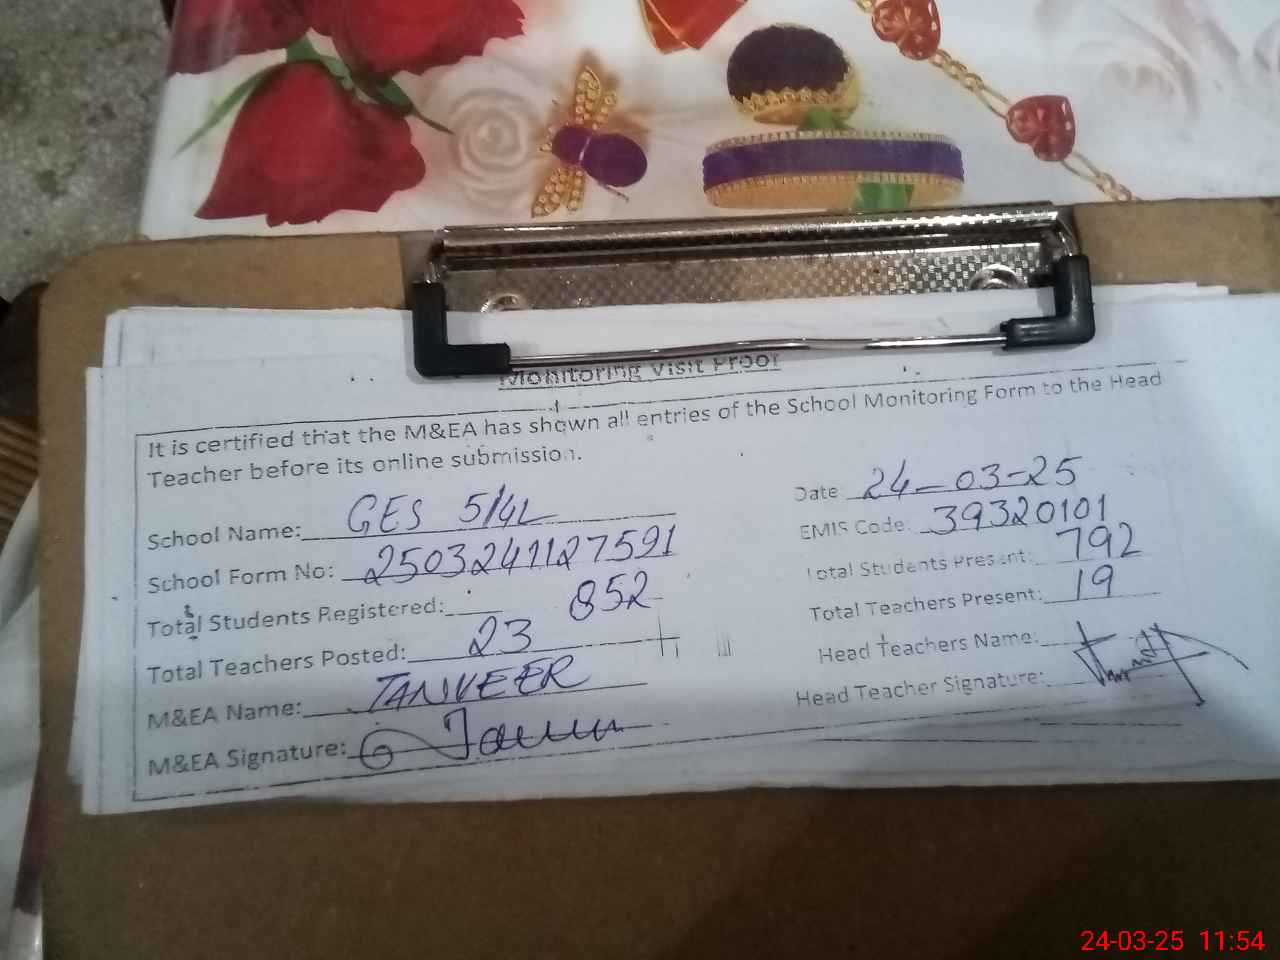 Monitoring Visit Proof
It is certified that the M&EA has shown all entries of the School Monitoring Form to the Head
Teacher before its online submission.
School Name: GES 5/4L
Date 24-03-25
School Form No: 2503241127591
EMIS Code: 39320101
Total Students Registered: 852
Total Students Present: 792
Total Teachers Posted: 23
Total Teachers Present: 19
M&EA Name: TANVEER
Head Teachers Name:
M&EA Signature:
Head Teacher Signature:
24-03-25 11:54